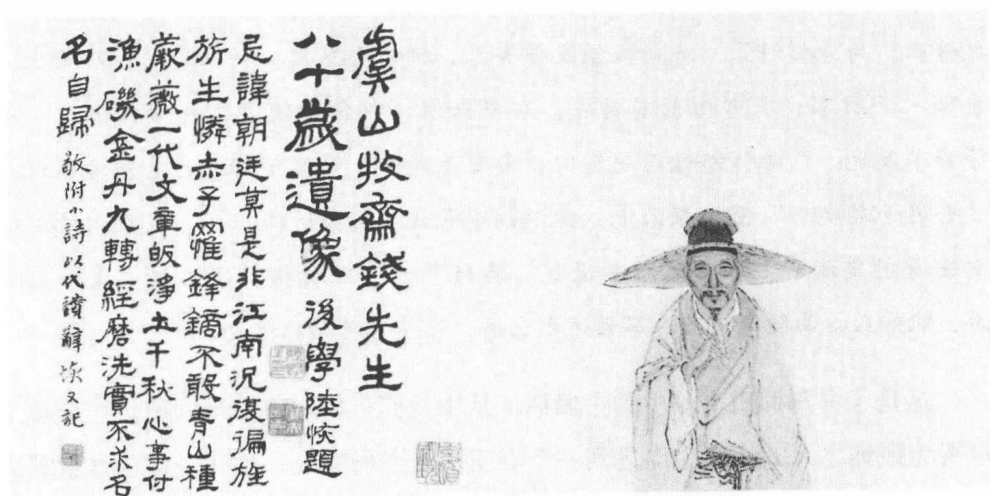 虞山牧齋錢先生
八十歲遺像 後學陸恢題
忌諱朝廷莫是非江南況復徧旌
旂生憐赤子罹鋒鏑不敢青山種
蕨薇一代文章皈淨土千秋心事付
漁磯金丹九轉經磨洗實不求名
名自歸 敬附小詩以代讚辭 恢又記